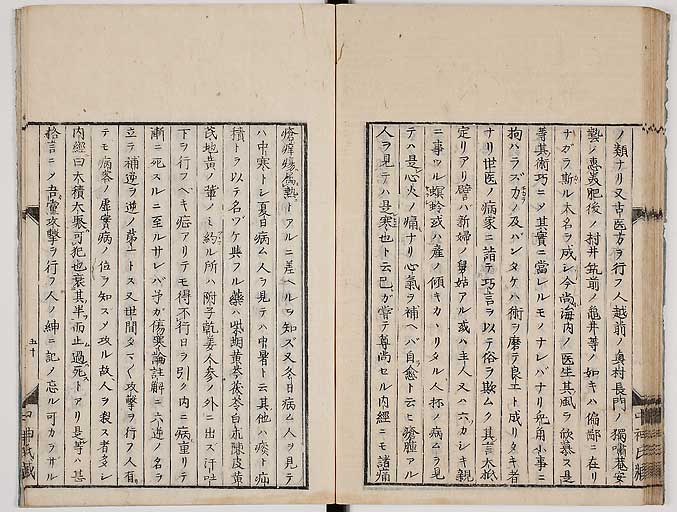 ノ類ナリ又古医方ヲ行フ人越前ノ奥村長門ノ獨嘯菴安
藝ノ惠美肥後ノ村井筑前ノ亀井等ノ如キハ偏鄙ニ在リ
ナガラ斯ル太名ヲ成シ今尚海内ノ医生其風ヲ欣慕ス是
等其術巧ニメ其實ニ當レルモノナレバナリ兎角小事ニ
拘ハラズ力ノ及バンタケハ術ヲ磨テ良工ト成リタキ者
ナリ世医ノ病家ニ諸テ巧言ヲ以テ俗ヲ欺ムク其言大抵
定リアリ譬ハ新婦ノ舅姑アル或ハ主人又ハ六カシキ親
ニ事ツル蜾蛉或ハ産ノ傾キカヽリタル人杯ノ病ムヲ見
テハ是心火ノ痛ナリ心氣ヲ補ヘバ自愈ト云ヒ瘡腫アル
人ヲ見テハ是寒也ト云己ガ嘗テ尊尚セル内經ニモ諸痛
瘡痒瘍為熱トアルニ差ヘルヲ知ズ又冬日病ム人ヲ見テ
ハ中寒トシ夏日病ム人ヲ見テハ中暑ト云其他ハ痰ト疝
積トヲ以テ名ヅケ與フル藥ハ柴胡黄芩茯苓白朮陳皮黄
芪地黄ノ輩ノミ約ル所ハ附子乾姜人参ノ外ニ出ズ汗吐
下ヲ行フヘキ症アリテモ得不行日ヲ引ク内ニ病重リテ
漸ニ死スルニ至ルサレバ予ガ傷寒論註解ニ六逆ノ名ヲ
立ラ補逆ヲ逆ノ第一トス又世間タマヽ攻擊ヲ行フ人有
テモ病客ノ虚實病ノ位ヲ知ズメ攻ル故人ヲ殺ス者多シ
内經曰大積大聚可犯也衰其半而止過死トアリ是等ハ甚
格言ニメ吾黨攻擊ヲ行フ人ノ紳ニ記ノ忘ル可カラザル
五十
中神氏藏